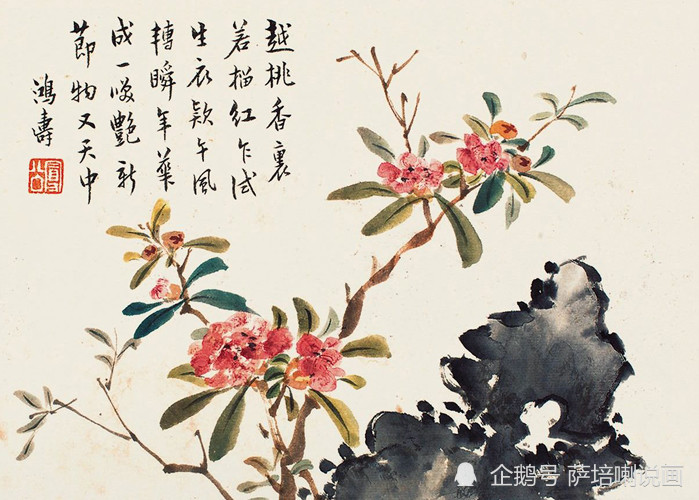 越桃香裏
若榴紅乍試
生衣款午風
轉瞬年華
成一咲艷新
節物又天中
鴻壽
企鹅号 萨培喇说画